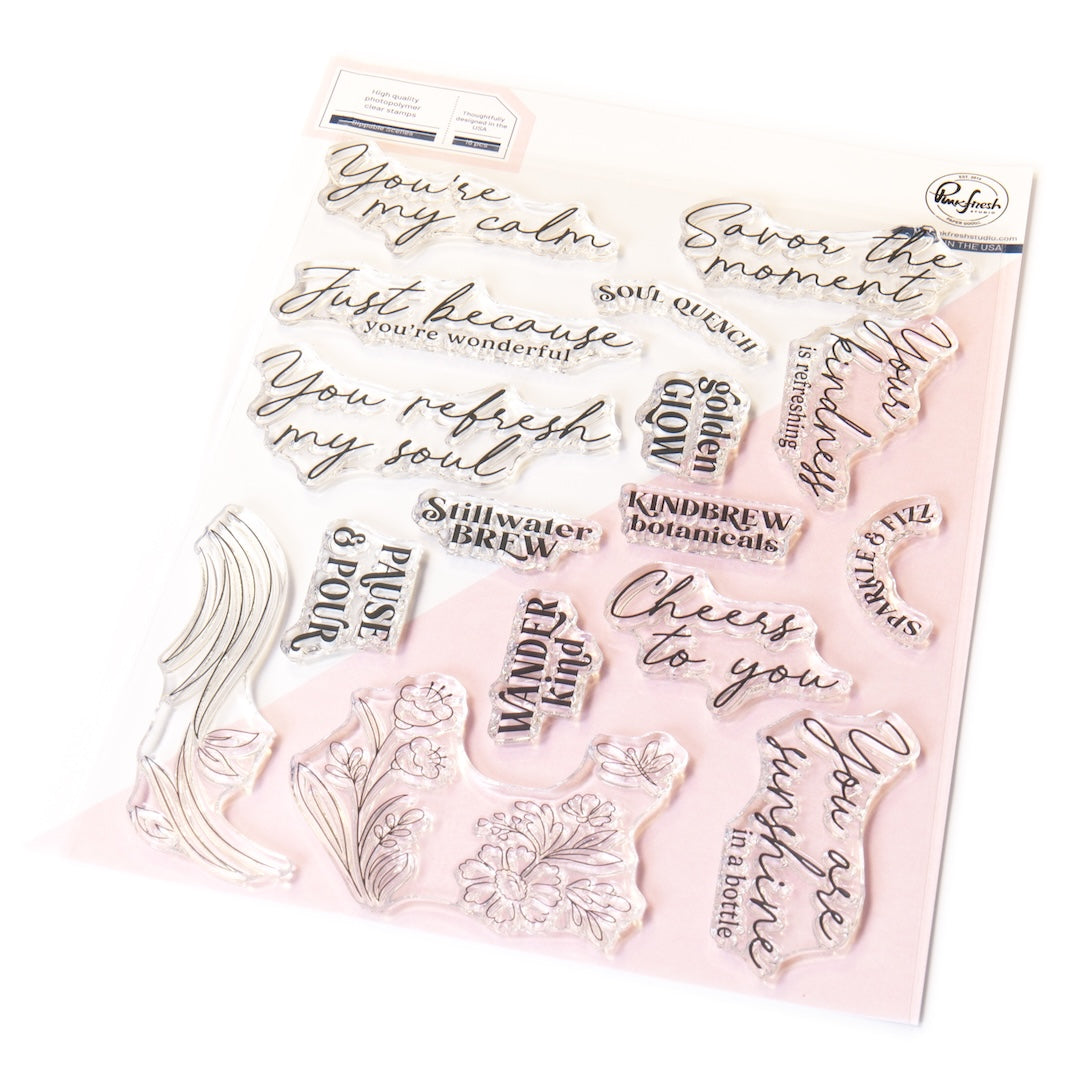 High quality
photopolymer
clear stamps
Sippable Scenes
Thoughtfully
designed in the
USA
16 pcs
EST. 2014
Pinkfresh
STUDIO
PAPER GOODS
pinkfreshstudio.com
IN THE USA
You're
my calm
Savor the
moment
Just because
you're wonderful
SOUL QUENCH
Your
kindness
is refreshing
You refresh
my soul
golden
GLOW
Stillwater
BREW
KINDBREW
botanicals
SPARKLE & FIZZ
PAUSE
& POUR
WANDER
kind
Cheers
to you
You are
sunshine
in a bottle